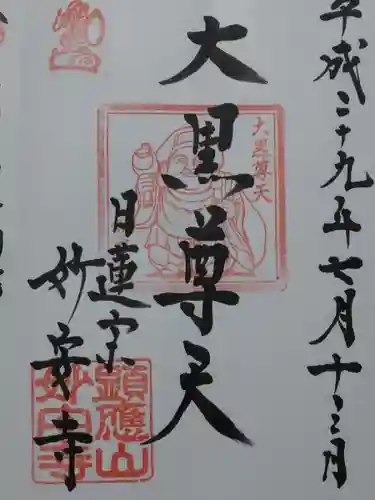 平成二十九年七月十二月
大黒尊天
大黒尊天
日蓮宗
妙安寺
顕應山
妙安寺